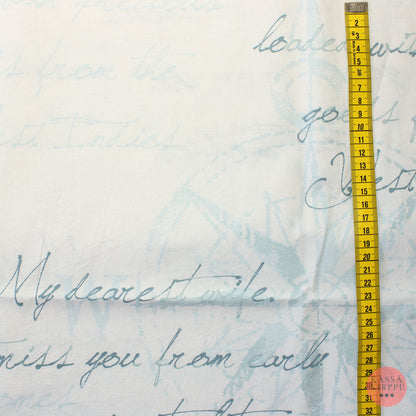 precious
loaded with
s from the
goods f
st Indies
West
My dearest wife.
miss you from early
KASSA
KIRPPU
2
3
4
5
6
7
8
9
10
11
12
13
14
15
16
17
18
19
20
21
22
23
24
25
26
27
28
29
30
31
32